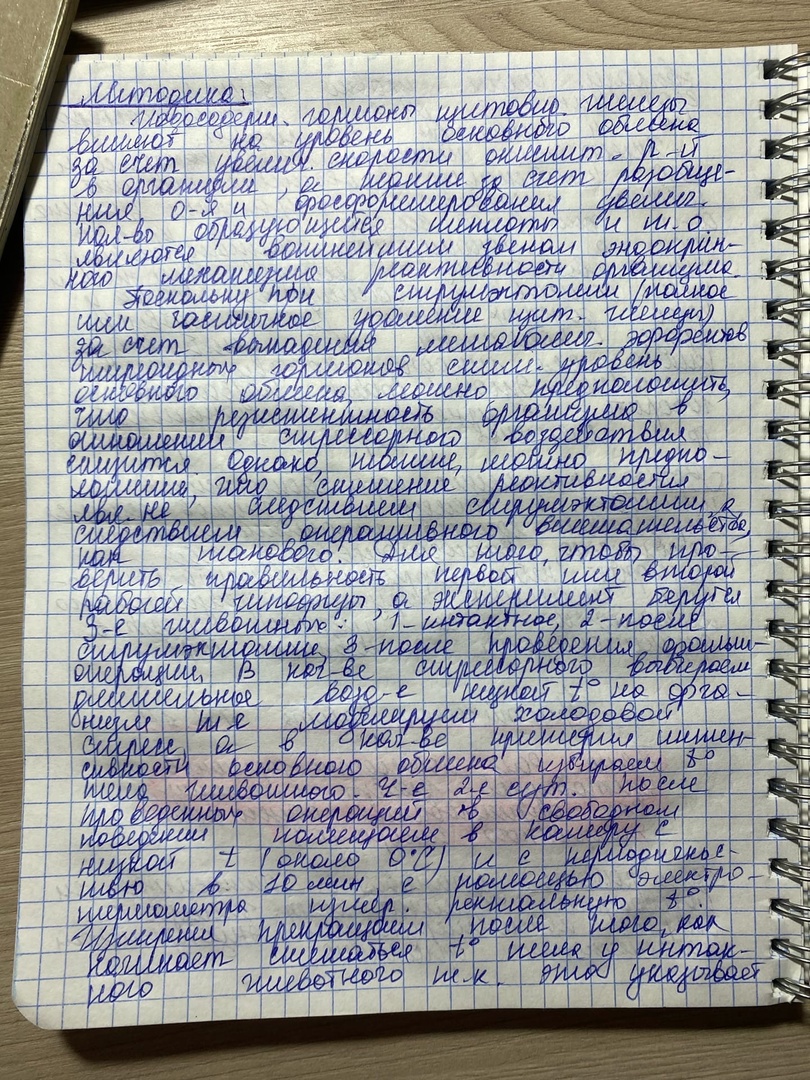 Методика:
Иодсодерж. гормоны щитовид. железы
влияют на уровень основного обмена
за счет увелич. скорости окислит. р-й
в организме, а также за счет разобще-
ния о-я и фосфорилирования увелич.
кол-во образующейся теплоты и т.о.
являются важнейшим звеном эндокрин-
ного механизма реактивности организма.
Поскольку при струмэктомии (полное
или частичное удаление щит. железы)
за счет выпадения метаболич. эффектов
тиреоидных гормонов сниж. уровень
основного обмена, можно предположить,
что резистентность организма в
отношении стрессорного воздействия
снизится. Однако, также, можно предпо-
ложить, что снижение реактивности
явл. не следствием струмэктомии, а
следствием оперативного вмешательства,
как такового. Для того, чтобы про-
верить правильность первой или второй
рабочей гипотезы, в эксперимент берутся
3-е животных: 1-интактное, 2-после
струмэктомии, 3-после проведения фальш-
операции. В кач-ве стрессорного выбираем
длительное возд-е низкой t° на орга-
низм т.е. моделируем холодовой
стресс, а в кач-ве критерия интен-
сивности основного обмена избираем t°
тела животного. Ч-е 2-е сут. после
проведенных операций в свободном
поведении помещаем в камеру с
низкой t (около 0°С) и с периодичнос-
тью в 10 мин с помощью электро-
термометра измер. ректальную t°.
Измерения прекращаем после того, как
начинает снижаться t° тела у интак-
ного животного т.к. это указывает